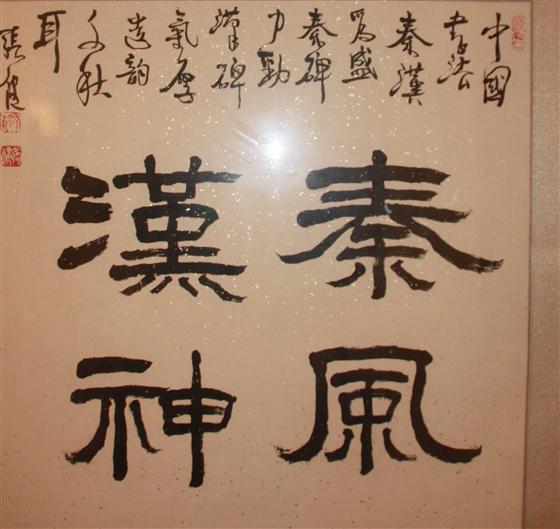 中國
書法
秦漢
爲盛
秦碑
力勁
漢碑
氣厚
遺韵
千秋
耳
秦風
漢神